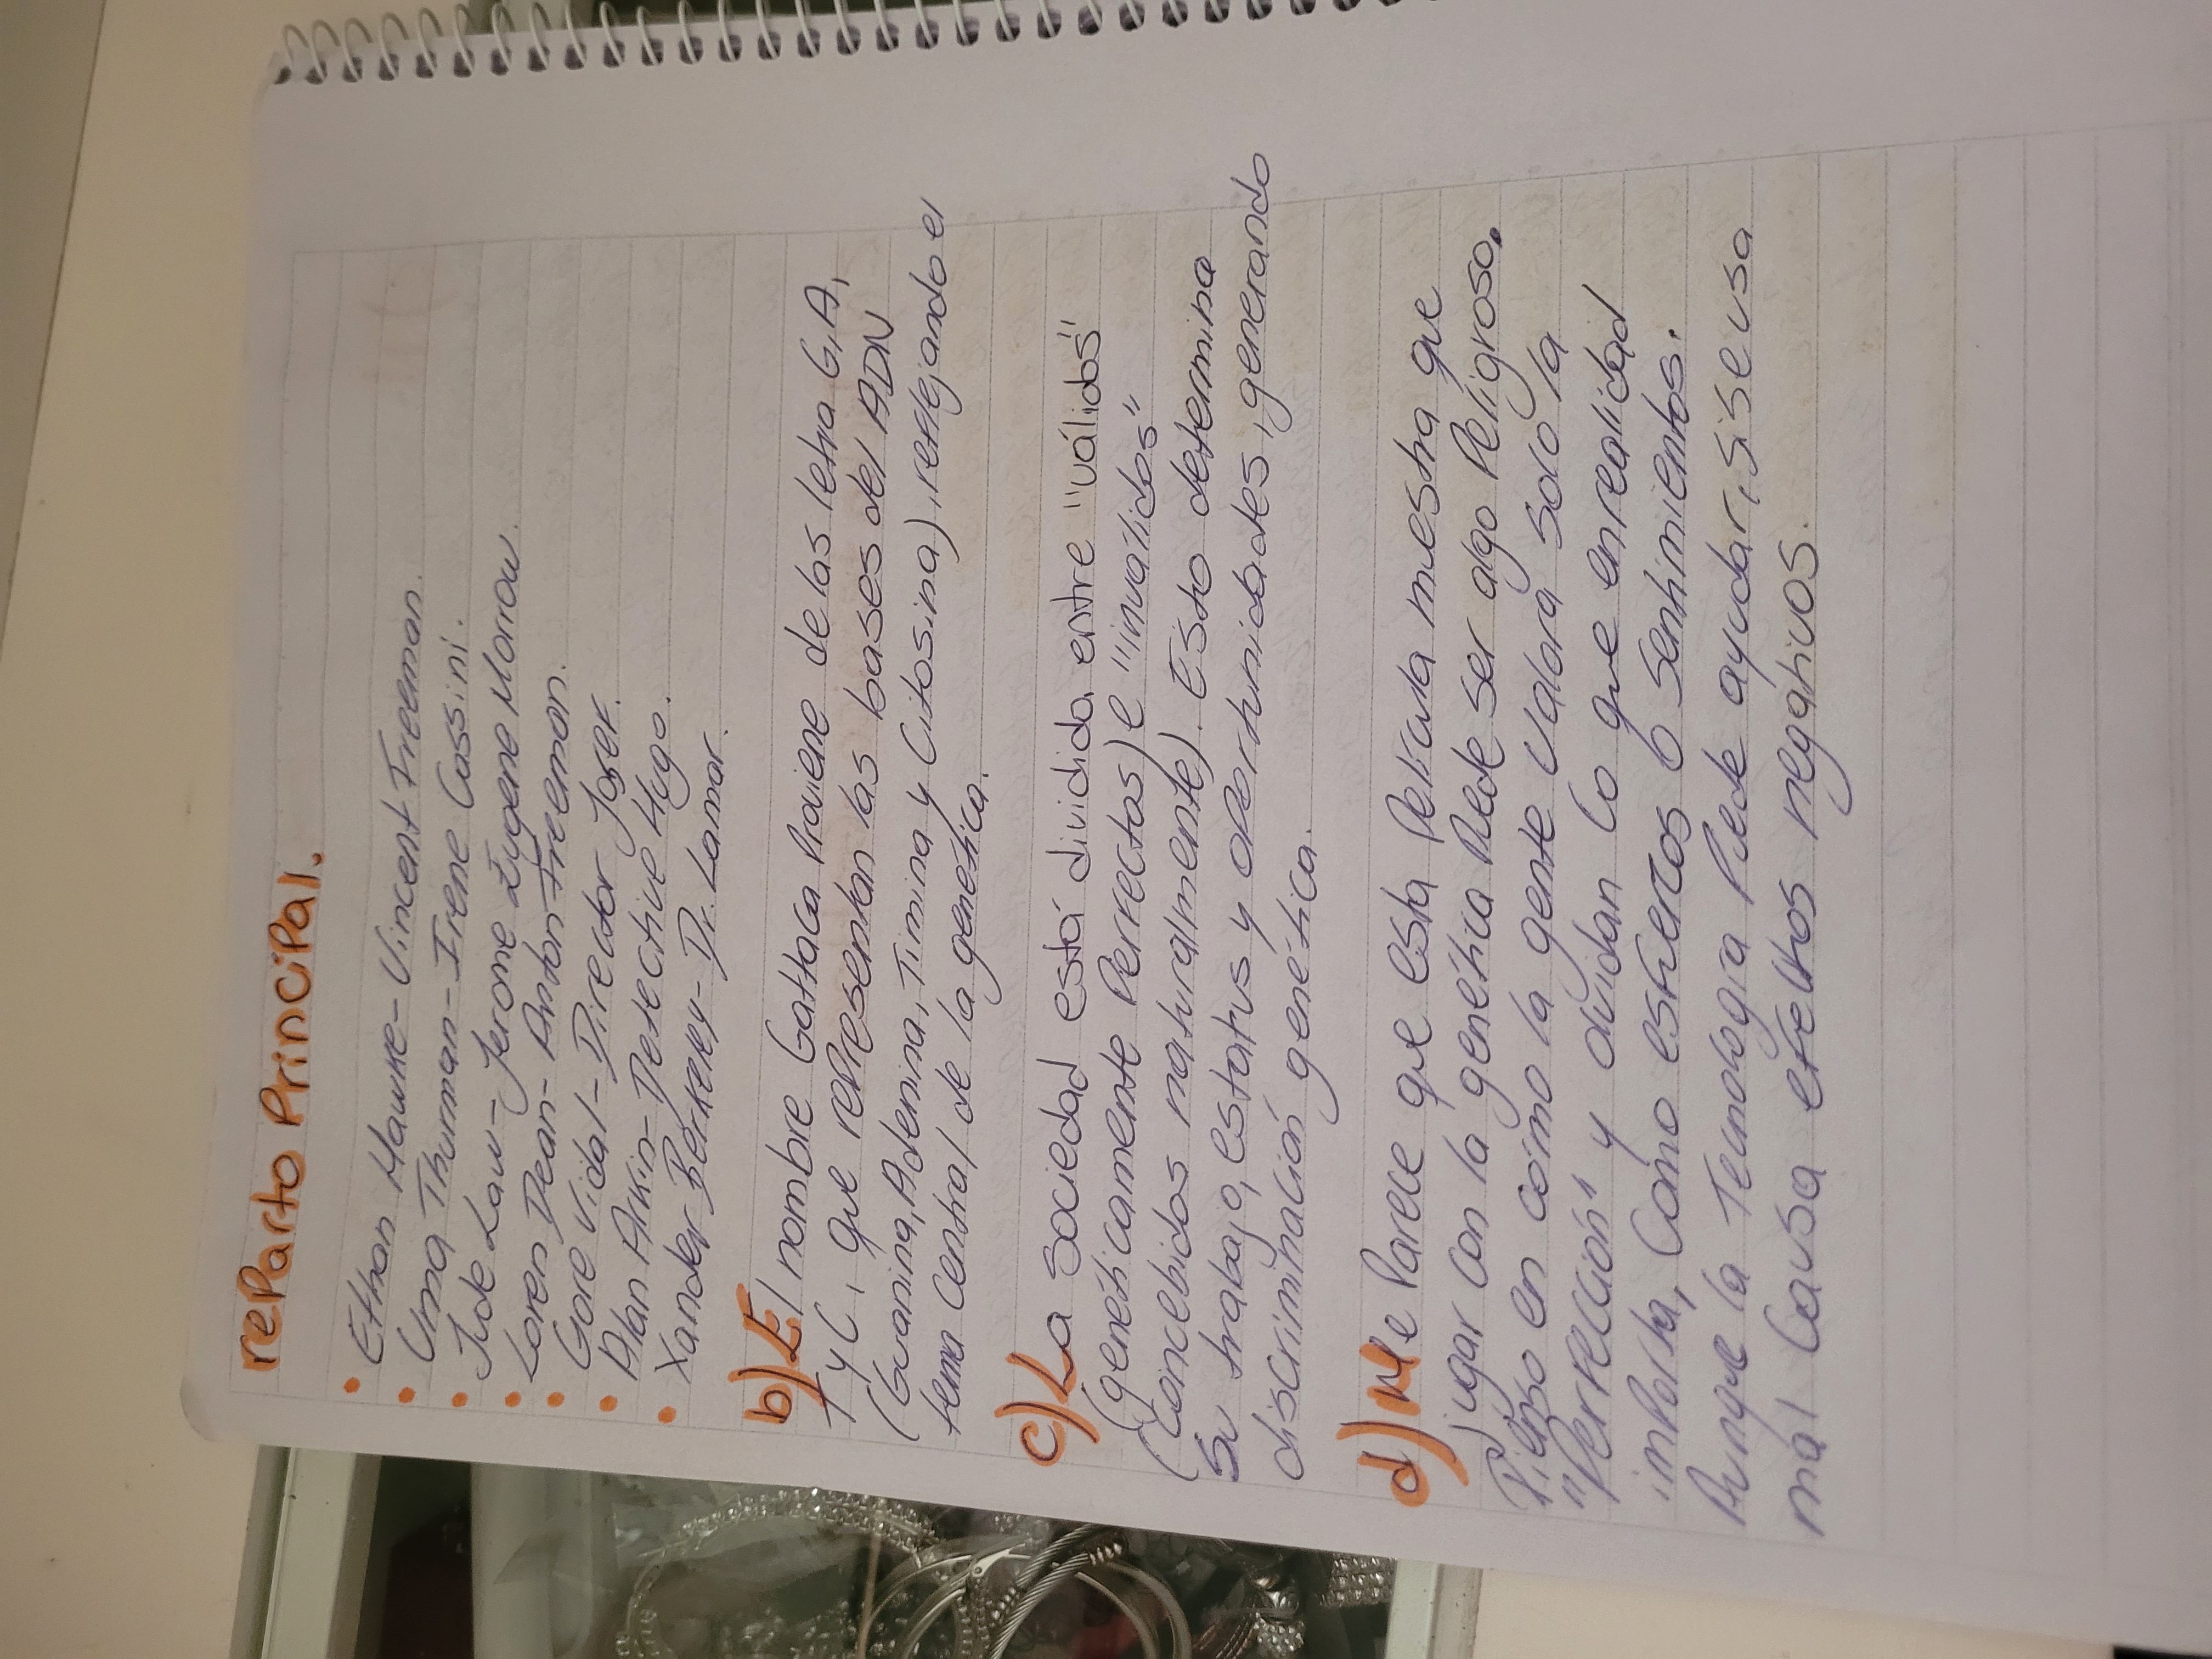 rePArto PrinciPal.
• Ethan Hawke - Vincent Freeman.
• Uma Thurman - Irene Cassini.
• Jude Law - Jerome Eugene Morrow
• Loren Dean - Anton Freeman.
• Gore Vidal - Director Josef.
• Alan Arkin - Detective Hugo.
• Xander Berkeley - Dr. Lamar.
b) El nombre Gattaca Proviene de las letra G, A,
T y C, que representan las bases del ADN
(Guanina, Adenina, Timina y Citosina), reflejando el
tema Central de la genética.
c) La sociedad está dividida entre "válidos"
(genéticamente Perfectos) e "invalidos"
(concebidos naturalmente). Esto determina
su trabajo, estatus y oPortunidades, generando
discriminación genética.
d) Me Parece que esta Pelicula muestra que
jugar con la genética Puede ser algo Peligroso.
Pienso en cómo la gente valora solo la
"Perfección" y olvidan lo que enrealidad
imPorta, Como esfuerzos o sentimientos.
Aunque la Tecnologia Puede ayudar, si se usa
mal Causa efectos negativos.